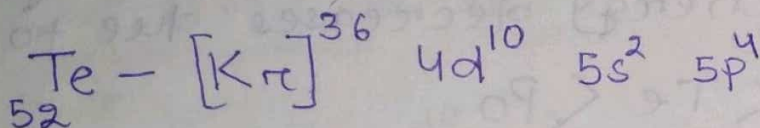 ₅₂Te - [Kr]³⁶ 4d¹⁰ 5s² 5p⁴